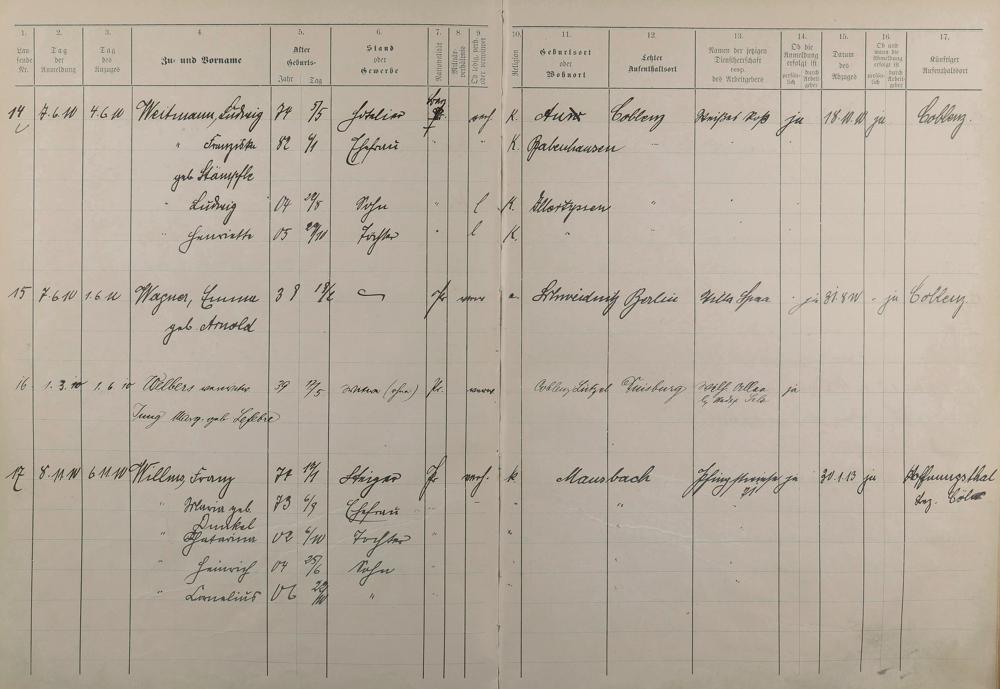 1. 2. 3. 4. 5. 6. 7. 8. 9. 10. 11. 12. 13. 14. 15. 16. 17.
Lau fende Nr. Tag der Anmeldung Tag des Anzuges Zu- und Vorname Alter Geburts- Jahr Tag Stand oder Gewerbe Nationalität Militär- verhältnisse Ob ledig, verh. oder verwitwet Religion Geburtsort oder Wohnort Letzter Aufenthaltsort Namen der jetzigen Dienstherrschaft resp. des Arbeitgebers Ob die Anmeldung erfolgt ist persön- lich durch Arbeit- geber Datum des Abzuges Ob und wann die Abmeldung erfolgt ist persön- lich durch Arbeit- geber Künftiger Aufenthaltsort
14 7.6.10 4.6.10 Weitmann, Ludwig 74 5/5 Hotelier verh. K. Coblenz Weißes Roß ja 18.10.10 ja Coblenz.
" Franziska 82 6/1 Ehefrau " " K. Babenhausen " "
geb Stämpfle
" Ludwig 04 Sohn " l K. Illertyssen "
" Henriette 05 29/10 Tochter " l K. " "
15 7.6.10 1.6.10 Wagner, Emma 38 Pr verw e. Schweidnitz Berlin Villa Spaa " ja 31.8.10 " ja Coblenz
geb Arnold
16 1.3.10 1.6.10 Wilbers 39 Witwe (ohne) Pr. verw. Coblenz Lützel Duisburg ja
Jung Marg. geb Lefebre
17 8.11.10 6.11.10 Willms, Franz 74 19/1 Steiger Pr verh. K Mausbach ja 30.1.13 ja Hoffnungsthal
" Maria geb. 73 6/9 Ehefrau " " " 21. Bez. Cöln
Dunkel
" Catarina 02 6/10 Tochter "
" Heinrich 04 25/6 Sohn "
" Cornelius 06 22/10 " "